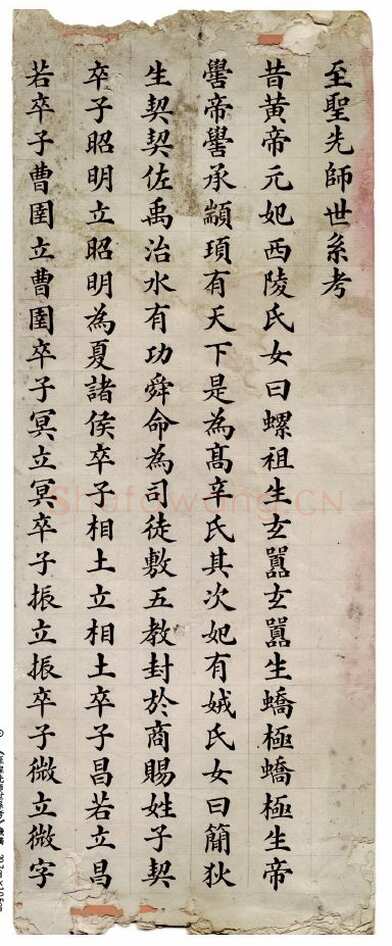 至聖先師世系考
昔黄帝元妃西陵氏女曰螺祖生玄囂玄囂生蟜極蟜極生帝
嚳帝嚳承顓頊有天下是為髙辛氏其次妃有娀氏女曰簡狄
生契契佐禹治水有功舜命為司徒敷五教封於商賜姓子契
卒子昭明立昭明為夏諸侯卒子相土立相土卒子昌若立昌
若卒子曹圉立曹圉卒子冥立冥卒子振立振卒子微立微字
Shufawang.CN